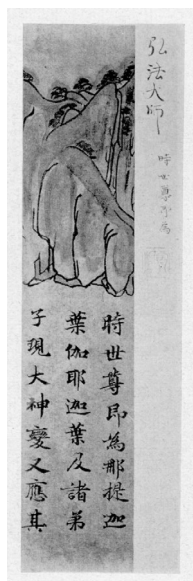 弘法大師
時世尊即為
時世尊即為那提迦
葉伽耶迦葉及諸弟
子現大神變又應其